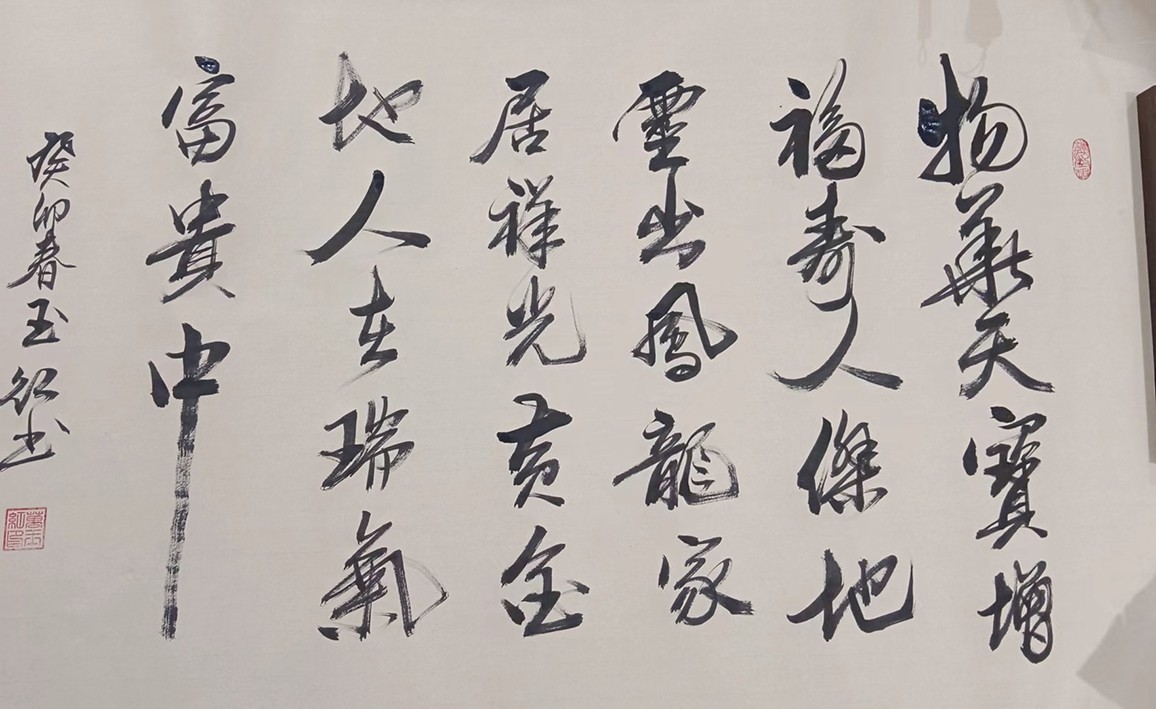 物華天寶增
福壽人傑地
靈出鳳龍家
居祥光黄金
地人在瑞氣
富貴中
癸卯春玉红书